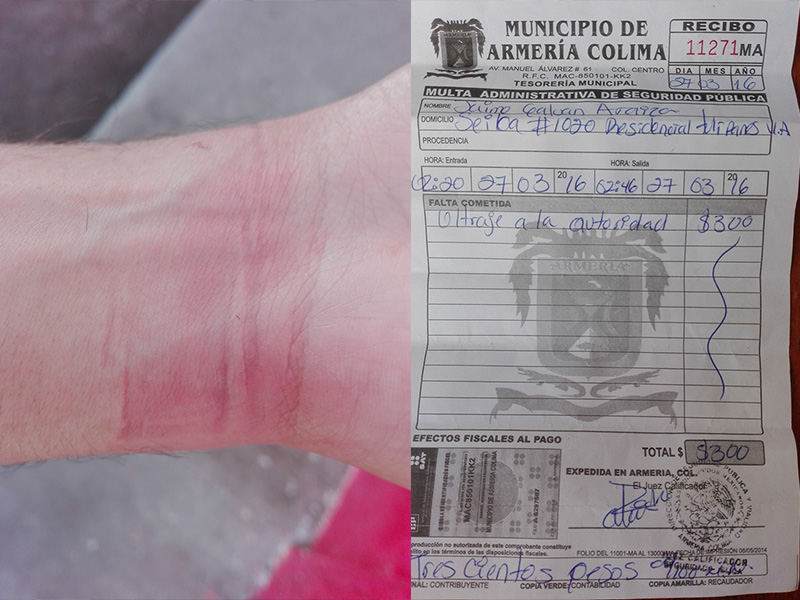 MUNICIPIO DE
ARMERÍA COLIMA
AV. MANUEL ÁLVAREZ # 61 COL. CENTRO
R.F.C. MAC-850101-KK2
TESORERÍA MUNICIPAL
RECIBO
11271MA
DIA MES AÑO
27 03 16
MULTA ADMINISTRATIVA DE SEGURIDAD PÚBLICA
NOMBRE Jaime Galvan
DOMICILIO Seiba #1020 Presidencial
PROCEDENCIA
HORA: Entrada HORA: Salida
02:20 27 03 2016 02:46 27 03 2016
FALTA COMETIDA
Ultraje a la autoridad $300
ARMERIA
EFECTOS FISCALES AL PAGO
TOTAL $ $300
SAT
MAC850101KK2
MUNICIPIO DE ARMERIA COLIMA
EXPEDIDA EN ARMERIA, COL.
El Juez Calificador
producción no autorizada de este comprobante constituye
delito en los términos de las disposiciones fiscales.
FOLIO DEL 11001-MA AL FECHA DE IMPRESIÓN 06/05/2014
CALIFICADOR
Tres cientos pesos
NAL: CONTRIBUYENTE COPIA VERDE: CONTABILIDAD COPIA AMARILLA: RECAUDADOR